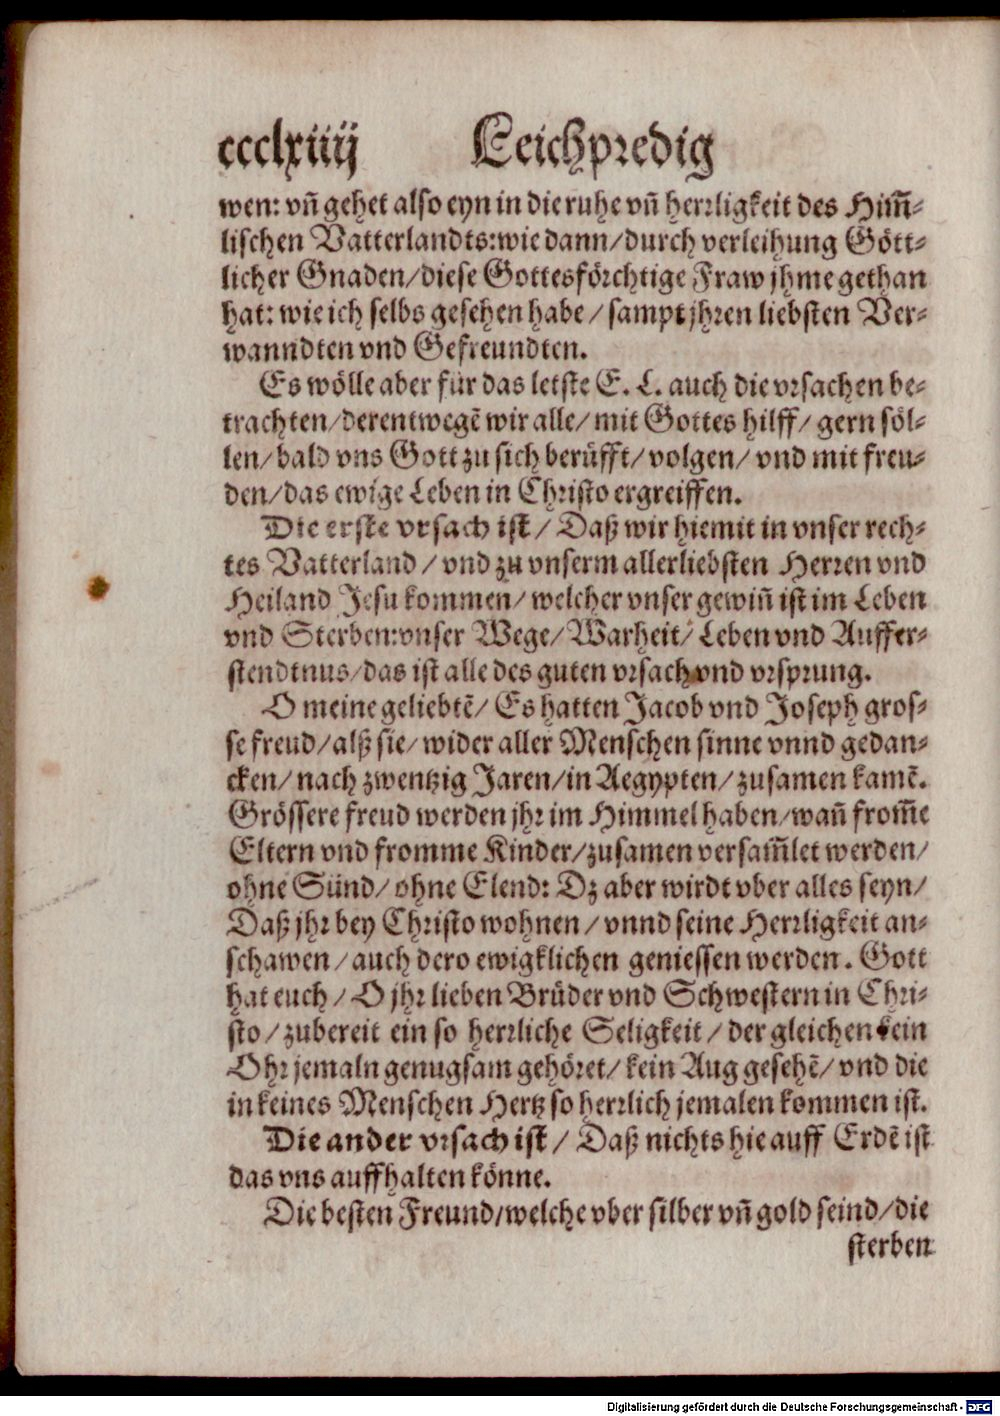 ccclxiiij Leichpredig
wen: vñ gehet also eyn in die ruhe vñ herrligkeit des Him̃-
lischen Vatterlandts: wie dann/ durch verleihung Gött-
licher Gnaden/ diese Gottesförchtige Fraw jhme gethan
hat: wie ich selbs gesehen habe/ sampt jhren liebsten Ver-
wanndten vnd Gefreundten.
Es wölle aber für das letste E. L. auch die vrsachen be-
trachten/ derentwegẽ wir alle/ mit Gottes hilff/ gern söl-
len/ bald vns Gott zu sich berüfft/ volgen/ vnd mit freu-
den/ das ewige Leben in Christo ergreiffen.
Die erste vrsach ist/ Daß wir hiemit in vnser rech-
tes Vatterland/ vnd zu vnserm allerliebsten Herren vnd
Heiland Jesu kommen/ welcher vnser gewiñ ist im Leben
vnd Sterben: vnser Wege/ Warheit/ Leben vnd Auffer-
stendtnus/ das ist alle des guten vrsach vnd vrsprung.
O meine geliebtẽ/ Es hatten Jacob vnd Joseph gros-
se freud/ alß sie/ wider aller Menschen sinne vnnd gedan-
cken/ nach zwentzig Jaren/ in Aegypten/ zusamen kamẽ.
Grössere freud werden jhr im Himmel haben/ wañ from̃e
Eltern vnd fromme Kinder/ zusamen versam̃let werden/
ohne Sünd/ ohne Elend: Dz aber wirdt vber alles seyn/
Daß jhr bey Christo wohnen/ vnnd seine Herrligkeit an-
schawen/ auch dero ewigklichen geniessen werden. Gott
hat euch/ O jhr lieben Brüder vnd Schwestern in Chri-
sto/ zubereit ein so herrliche Seligkeit/ der gleichen kein
Ohr jemaln genugsam gehöret/ kein Aug gesehẽ/ vnd die
in keines Menschen Hertz so herrlich jemalen kommen ist.
Die ander vrsach ist/ Daß nichts hie auff Erdẽ ist
das vns auffhalten könne.
Die besten Freund/ welche vber silber vñ gold seind/ die
sterben
Digitalisierung gefördert durch die Deutsche Forschungsgemeinschaft - DFG